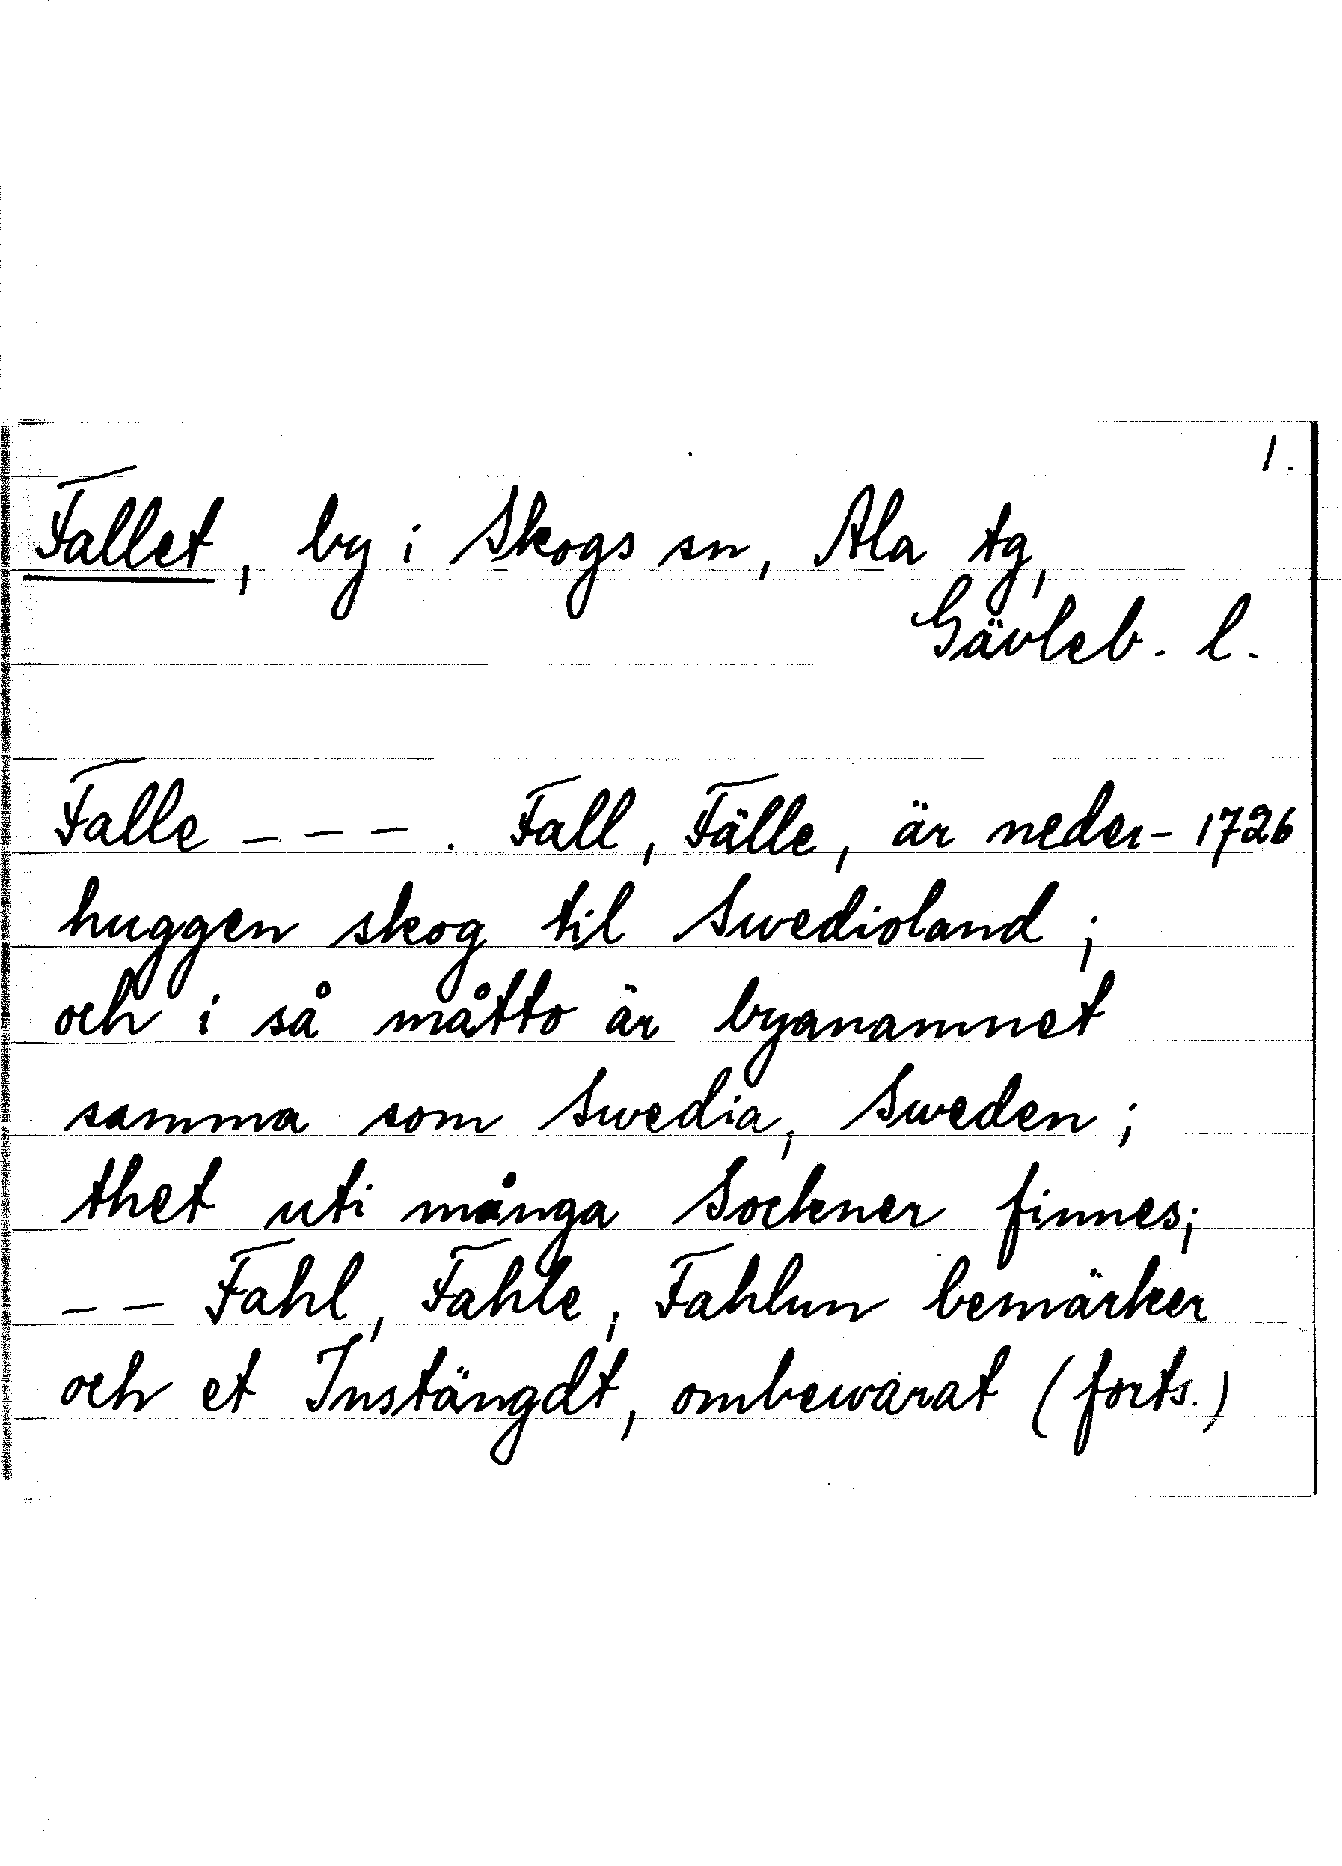 1.
Fallet, by i Skogs sn, Ala tg,
Gävleb. l.
Falle – – – . Fall, Fälle, är neder- 1726
huggen skog til Swedioland;
och i så måtto är byanamnet
samma som Swedia, Sweden;
thet uti många Sockner finnes;
– – Fahl, Fahle, Fahlun bemärker
och et Instängdt, ombewarat (forts.)